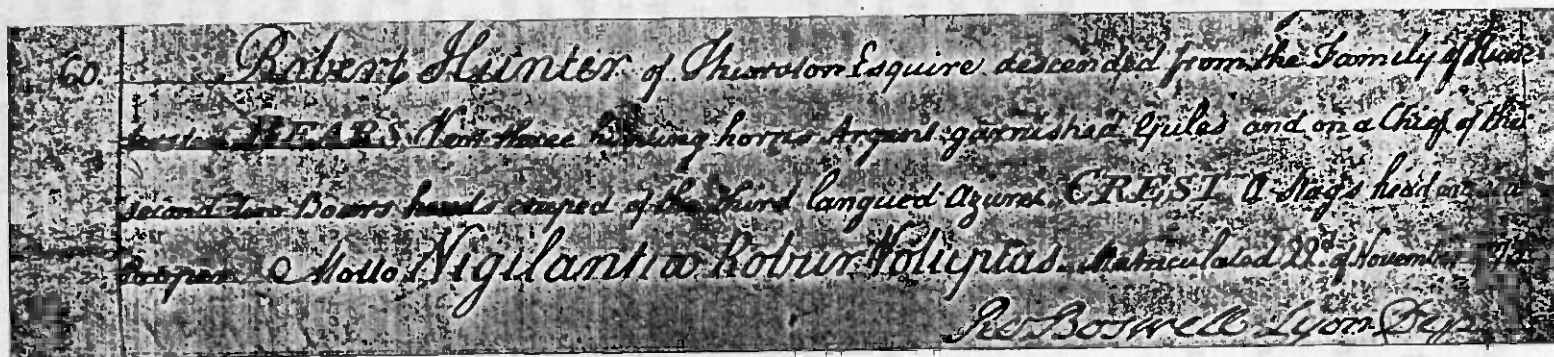 60. Robert Hunter of Thurston Esquire descended from the Family of Hunter
BEARS Vert three hunting horns Argent garnished Gules and on a Chief of the
second two Boars heads couped of the third langued Azure. CREST A Stag's head
proper Motto Vigilantia Robur Voluptas. Matriculated 22d. of November
Ro Boswell Lyon Dep.